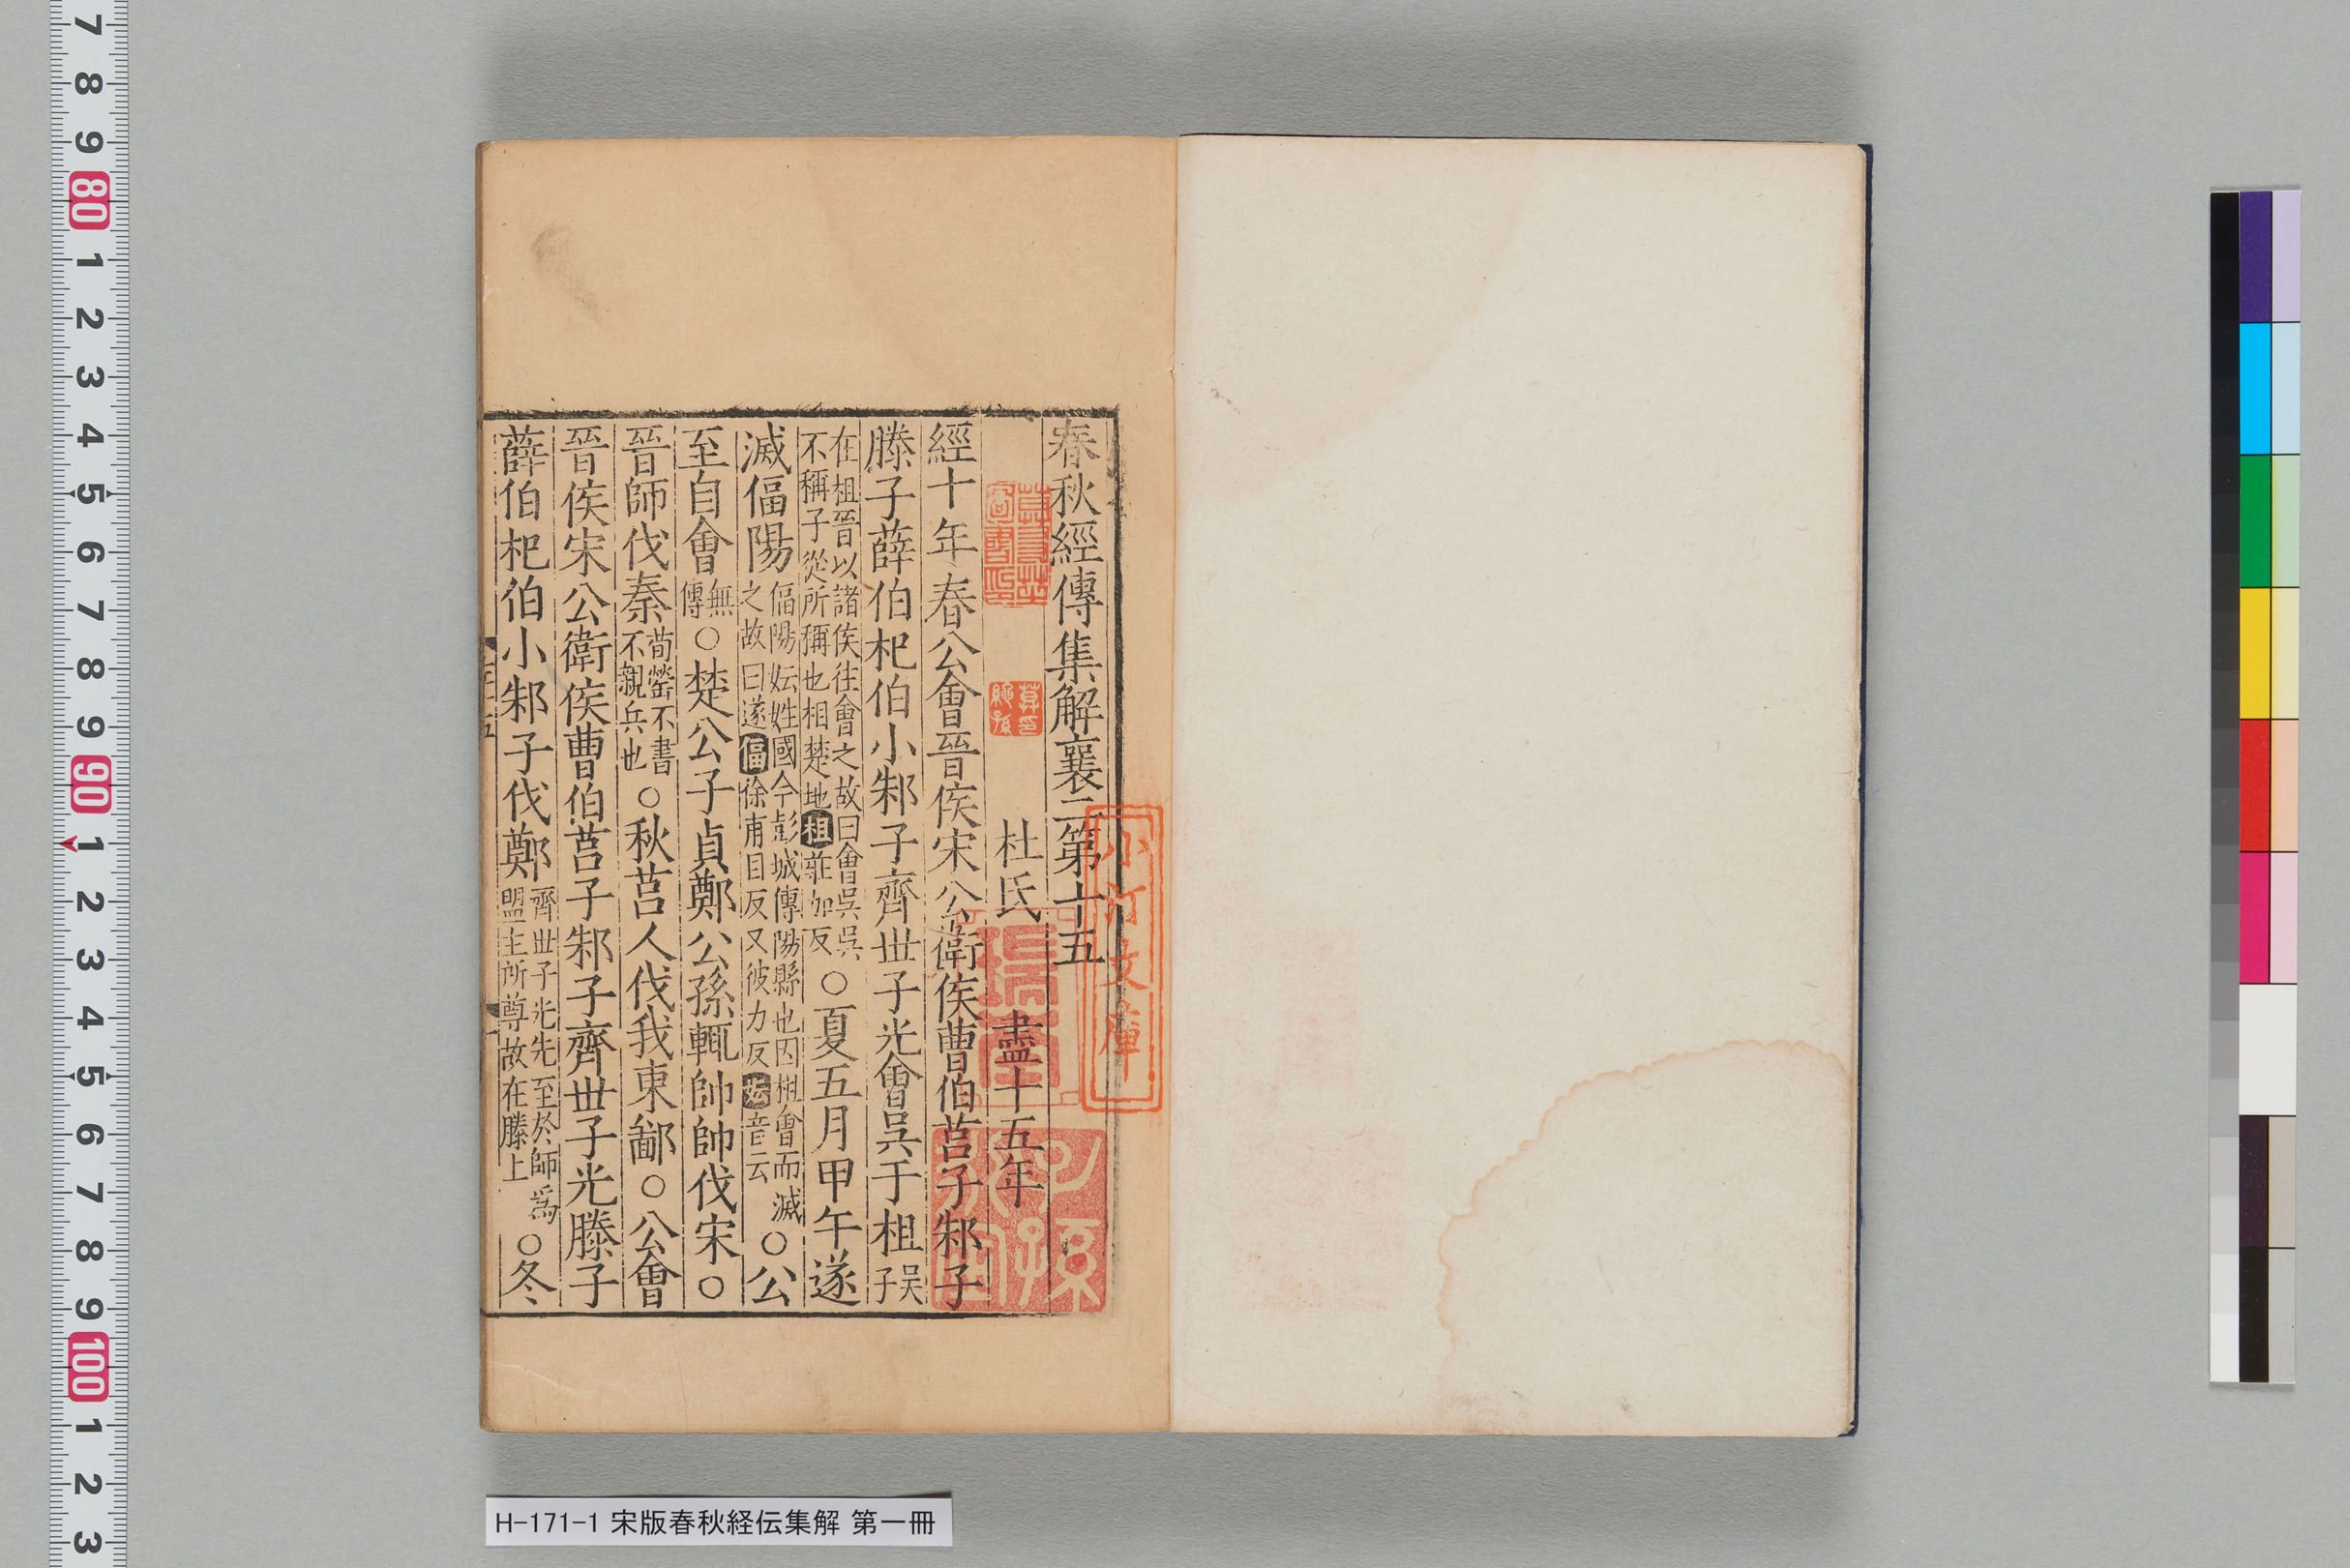 春秋經傳集解襄二第十五
杜氏 盡十五年
經十年春公會晉侯宋公衛侯曹伯莒子邾子
滕子薛伯杞伯小邾子齊世子光會吳于柤吳子
在柤晉以諸侯往會之故曰會吳吳
不稱子從所稱也柤楚地柤莊加反
○夏五月甲午遂
滅偪陽
偪陽妘姓國今彭城傅陽縣也因柤會而滅
之故曰遂偪徐甫目反又彼力反妘音云
○公
至自會無傳○楚公子貞鄭公孫輒帥師伐宋○
晉師伐秦
荀罃不書
不親兵也
○秋莒人伐我東鄙○公會
晉侯宋公衛侯曹伯莒子邾子齊世子光滕子
薛伯杞伯小邾子伐鄭
齊世子光先至於師爲
盟主所尊故在滕上
○冬
小汀文庫
H-171-1 宋版春秋経伝集解 第一冊
7 8 9 80 1 2 3 4 5 6 7 8 9 90 1 2 3 4 5 6 7 8 9 100 1 2 3